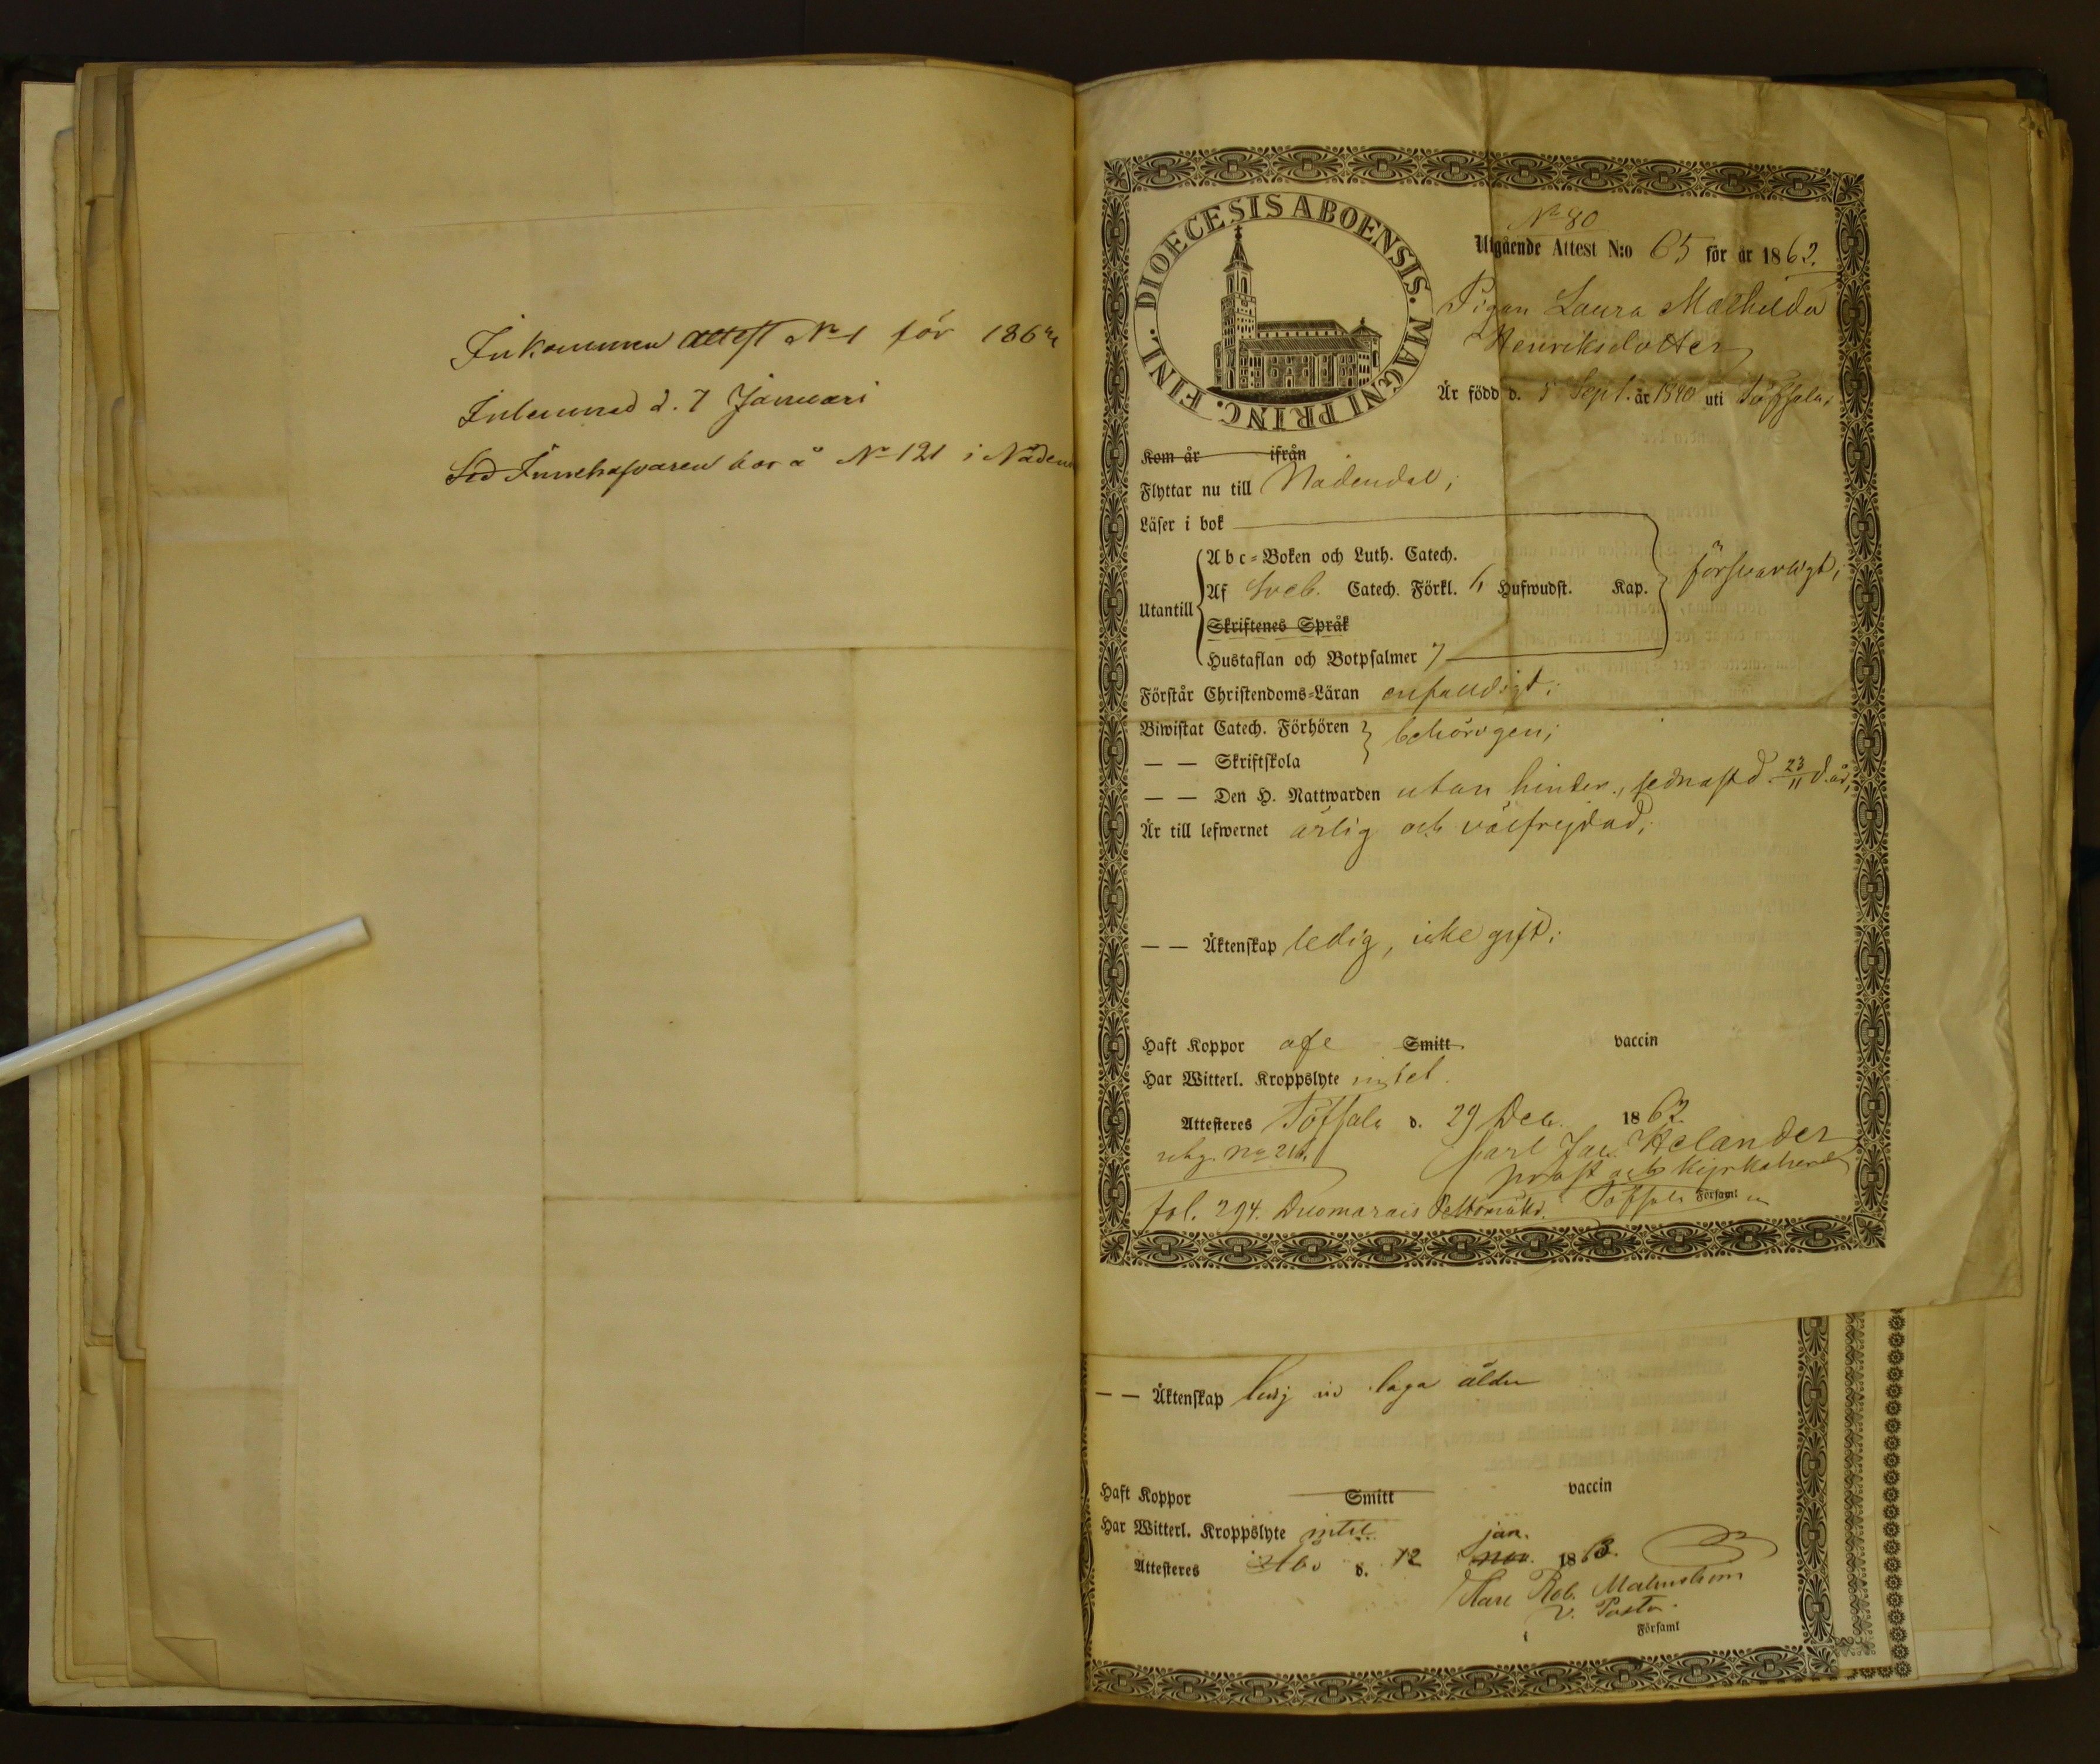 Inkommen attest No 1 för 186
Inlemnad d. 7 Januari
Innehafvaren bor å No 121 i Nådend
DIOECESIS ABOENSIS. MAGNI PRINC. FINL.
No 80
Utgående Attest N:o 65 för år 1862.
Pigan Laura Mathilda
Henriksdotter
Är född d. 5 Sept. år 1840 uti Töfsala;
Kom år ifrån
Flyttar nu till Nådendal;
Läser i bok
Abc-Boken och Luth. Catech.
Utantill Af Sveb. Catech. Förkl. Hufwudst. Kap. försvarligt;
Skriftenes Språk
Hustaflan och Botpsalmer 7
Förstår Christendoms-Läran enfaldigt;
Biwistat Catech. Förhören behörigen;
— — Skriftskola
— — Den H. Nattwarden utan hinder, sednast d. 23/11 d. år;
Är till lefwernet ärlig och välfrejdad;
— — Äktenskap ledig, icke gift;
Haft Koppor Smitt vaccin
Har Witterl. Kroppslyte intet.
Attesteres Töfsala d. 29 Dec. 1862
Carl Jac. Helander
No 216.
prost och kyrkoherde
fol. 294. Töfsala Församl
— — Äktenskap ledig vid laga ålder
Haft Koppor Smitt vaccin
Har Witterl. Kroppslyte intet
jan.
Attesteres Åbo d. 12 nov. 1863.
Karl Rob. Malmström
v. Pastor.
i Församl